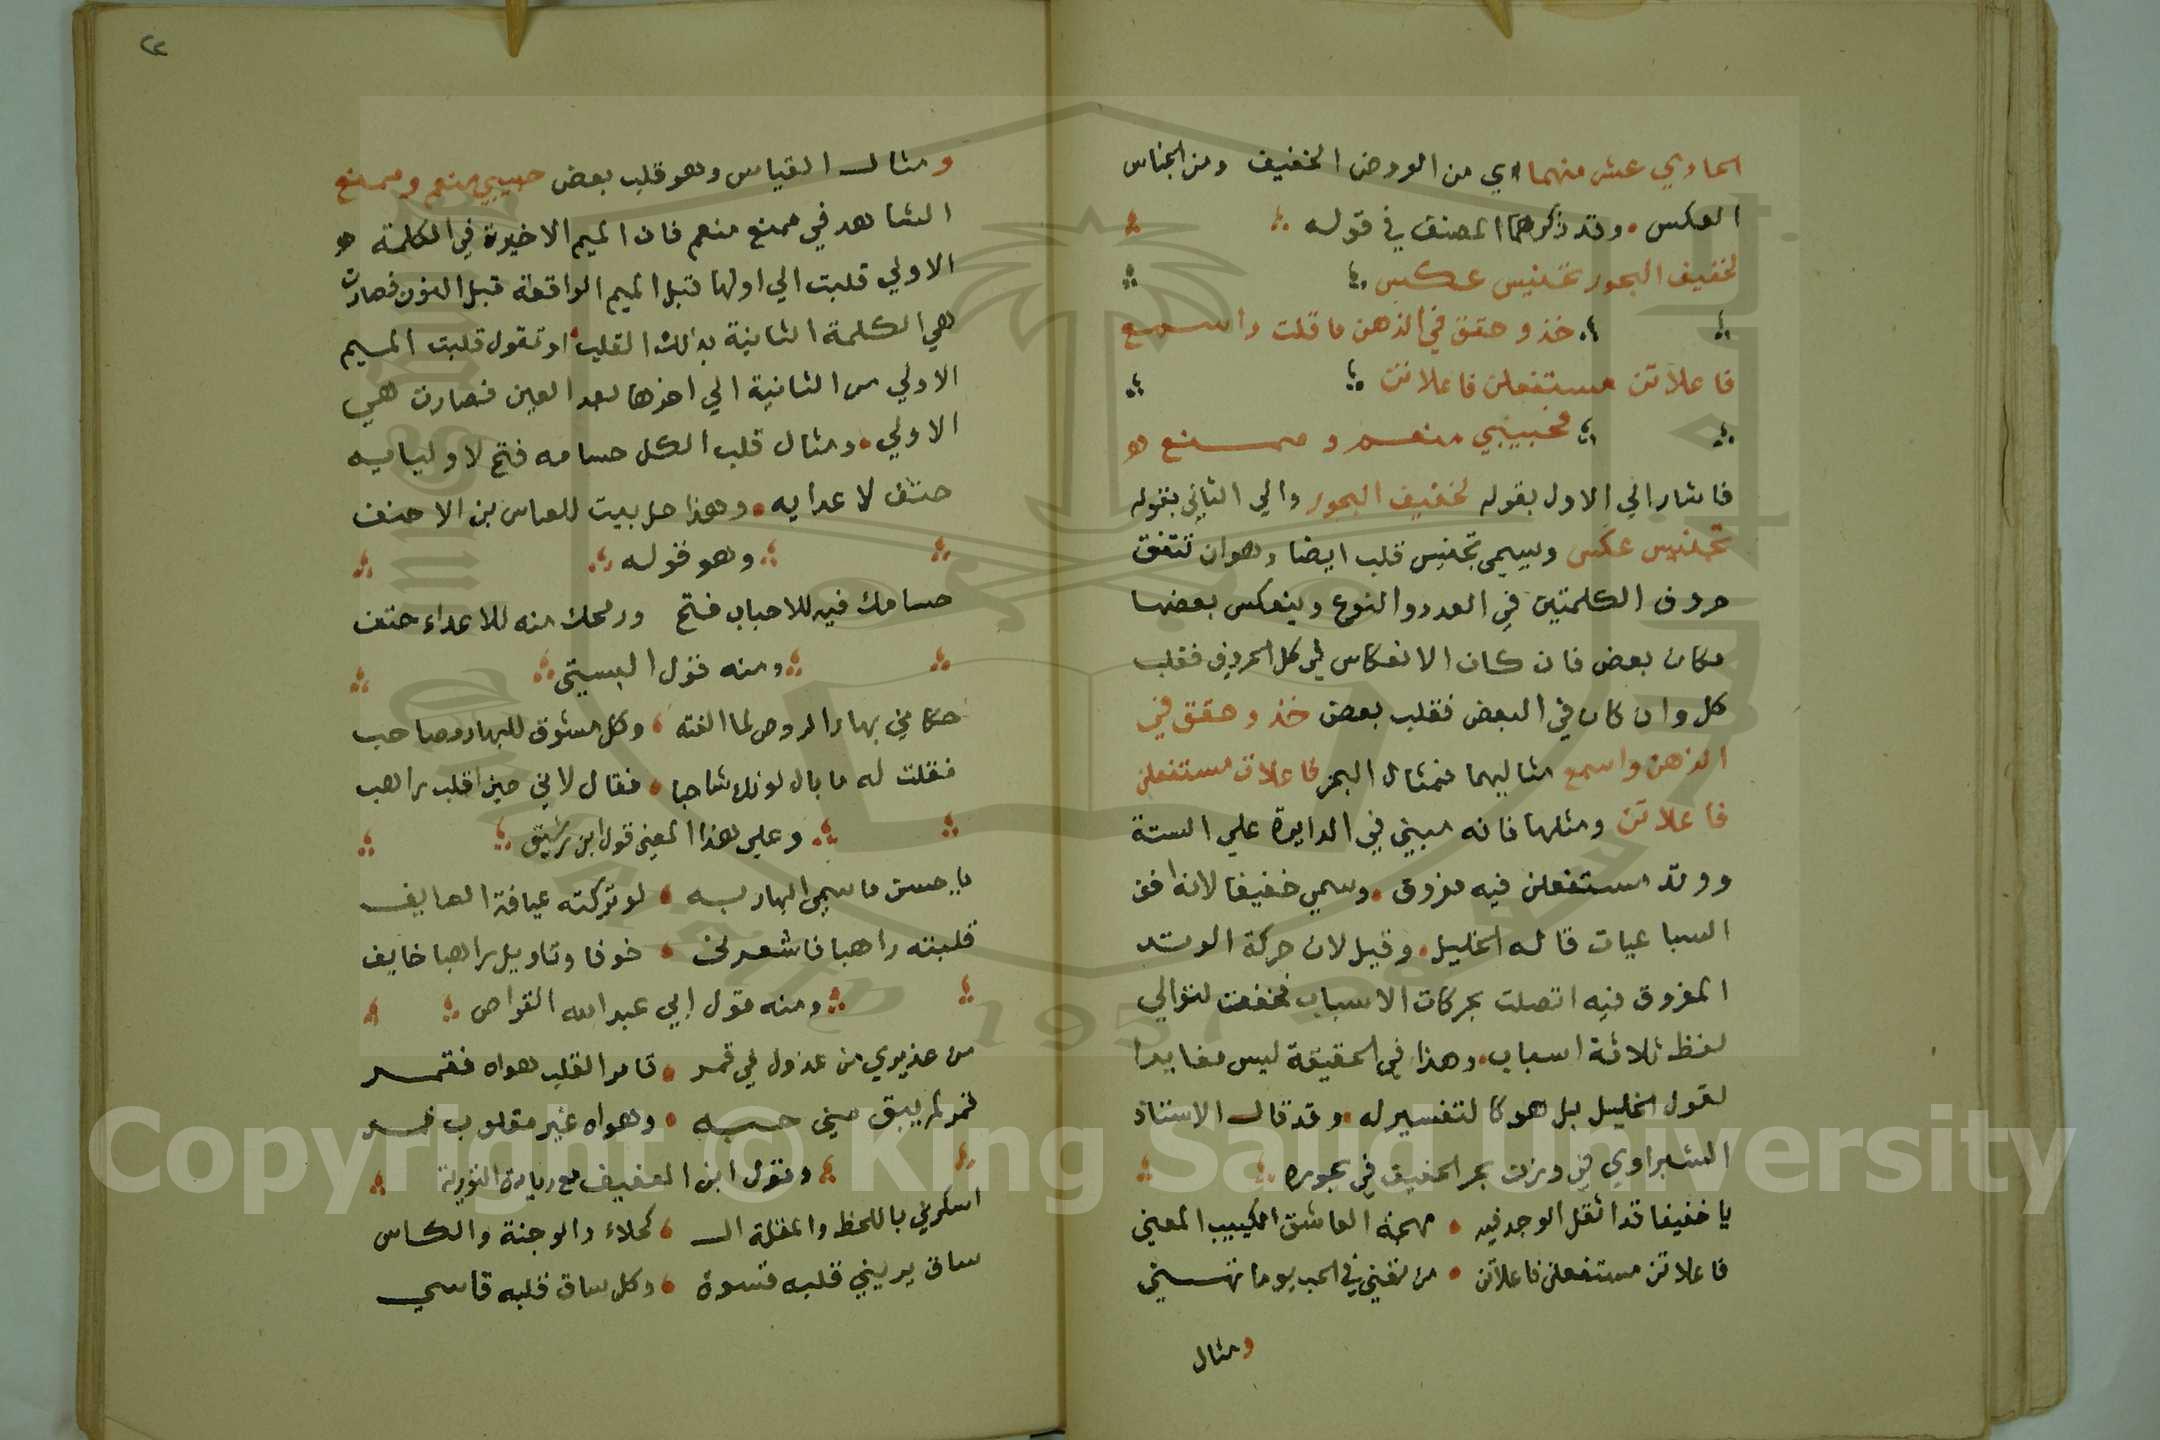 الحادي عشر منهما اي من العروض الخفيف ومن الجناس
العكس وقد ذكرهما المصنف في قوله
لخفيف البحور تجنيس عكس
خذ وحقق في الذهن ما قلت واسمع
فاعلاتن مستفعلن فاعلاتن
فحبيبي منعم وممنع
فاشار الي الاول بقوله لخفيف البحور والي الثاني بقوله
تجنيس عكس ويسمي تجنيس قلب ايضا وهو ان تتفق
حروف الكلمتين في العدد والنوع وينعكس بعضها
مكان بعض فان كان الانعكاس في كل الحروف فقلب
كل وان كان في البعض فقلب بعض خذ وحقق في
الذهن واسمع مثاليهما فمثال البحر فاعلاتن مستفعلن
فاعلاتن ومثلها فانه مبني في الدايرة علي الستة
ووتد مستفعلن فيه مفروق وسمي خفيفا لانه اخف
السباعيات قاله الخليل وقيل لان حركة الوتد
المفروق فيه اتصلت بحركات الاسباب فخففت لتوالي
لفظ ثلاثة اسباب وهذا في الحقيقة ليس مغايرا
لقول الخليل بل هو كالتفسير له وقد قال الاستاذ
الشبراوي في وزن بحر الخفيف في بحوره
يا خفيفا قد اثقل الوجد فيه مهجة العاشق الكييب المعني
فاعلاتن مستفعلن فاعلاتن من تغني في الحب يوما تهني
ومثال
٢٢
ومثال القياس وهو قلب بعض حبيبي منعم وممنع
الشاهد في ممنع منعم فان الميم الاخيرة في الكلمة
الاولي قلبت الي اولها قبل الميم الواقعة قبل النون فصارت
هي الكلمة الثانية بذلك القلب او تقول قلبت الميم
الاولي من الثانية الي اخرها بعد العين فصارت هي
الاولي ومثال قلب الكل حسامه فتح لاوليايه
حتف لاعدايه وهذا حل بيت للعباس بن الاحنف
وهو قوله
حسامك فيه للاحباب فتح ورمحك منه للاعداء حتف
ومنه قول البستي
حكاني بهار الروض لما الفته وكل مشوق للبهار مصاحب
فقلت له ما بال لونك شاحبا فقال لاني حين اقلب راهب
وعلي هذا المعني قول ابن رشيق
يا حسن ما سمي البهار به لو تركته عيافة العايف
قلبته راهبا فاشعرني خوفا وتاويل راهبا خايف
ومنه قول ابي عبد الله القواص
من عذيري من عذول في قمر قامر القلب هواه فقمر
قمر لم يبق مني حبه وهواه غير مقلوب قمر
وقول ابن العفيف مع زيادة التورية
اسكرني باللحظ والمقلة الـ كحلاء والوجنة والكاس
ساق يريني قلبه قسوة وكل ساق قلبه قاسي
Copyright © King Saud University
1957